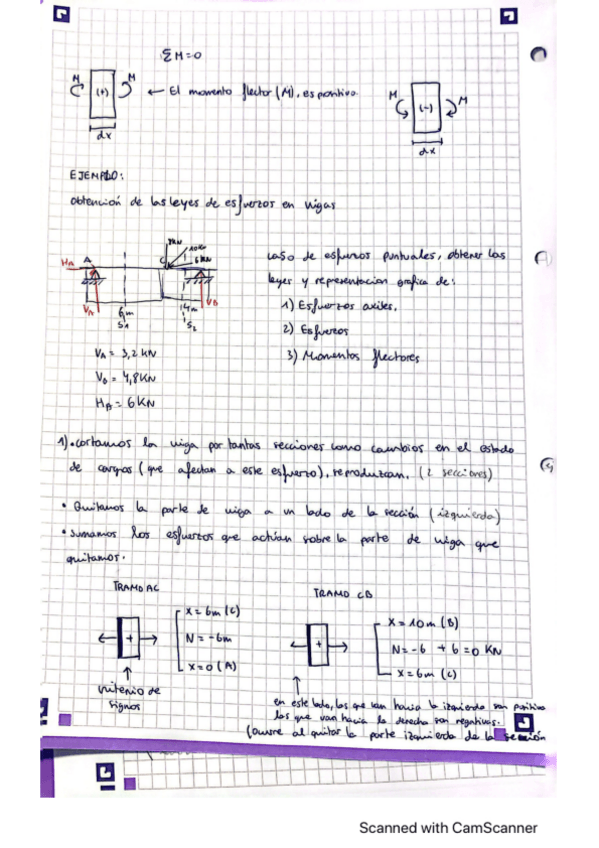 ΣM=0
M (+) M ← El momento flector (M), es positivo.
M (-) M
dx
dx
EJEMPLO:
obtención de las leyes de esfuerzos en vigas
8KN
10KN
6KN
HA A C
VA 6m 4m VB
S1 S2
caso de esfuerzos puntuales, obtener las
leyes y representacion grafica de:
1) Esfuerzos axiles.
2) Esfuerzos
3) Momentos flectores
VA = 3,2 KN
VB = 4,8KN
HA = 6 KN
1).cortamos la viga por tantas secciones como cambios en el estado
de cargas (que afectan a este esfuerzo), reproduzcan. (2 secciones)
• Quitamos la parte de viga a un lado de la sección (izquierda)
• sumamos los esfuerzos que actúan sobre la parte de viga que
quitamos.
TRAMO AC
x = 6m (C)
+ N = -6m
x = 0 (A)
criterio de
signos
TRAMO CB
x = 10m (B)
+ N = -6 + 6 = 0 KN
x = 6m (C)
en este lado, los que van hacia la izquierda son positivo
los que van hacia la derecha son negativas.
(ocurre al quitar la parte izquierda de la sección
Scanned with CamScanner